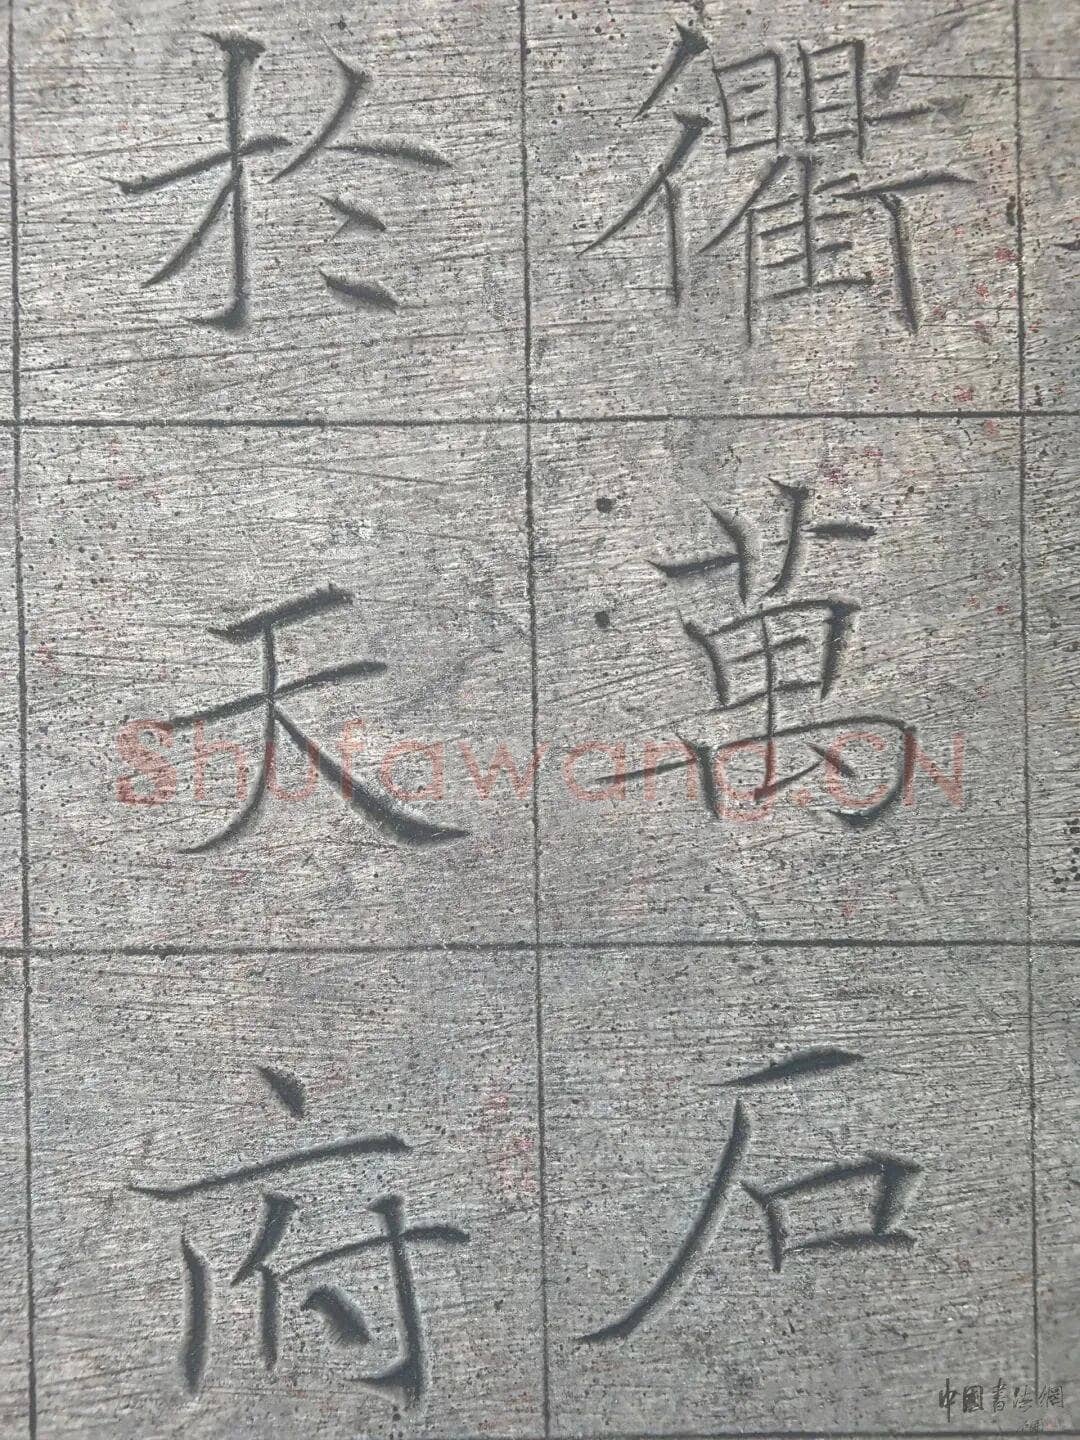 衢萬石
於天府
Shufawang.CN
中國書法網